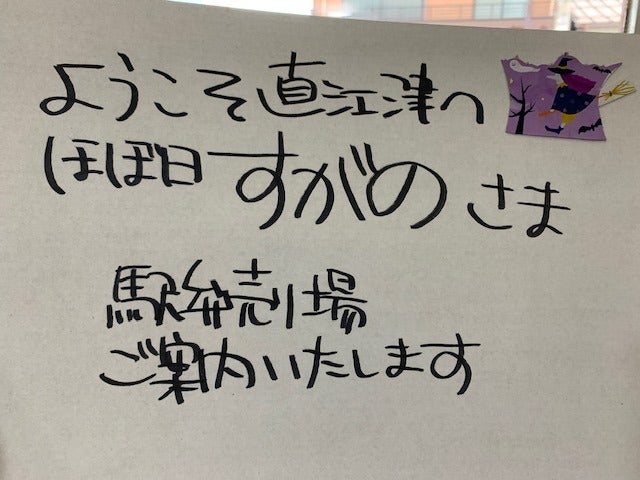 ようこそ直江津へ
ほぼ日すがのさま
駅弁売り場
ご案内いたします